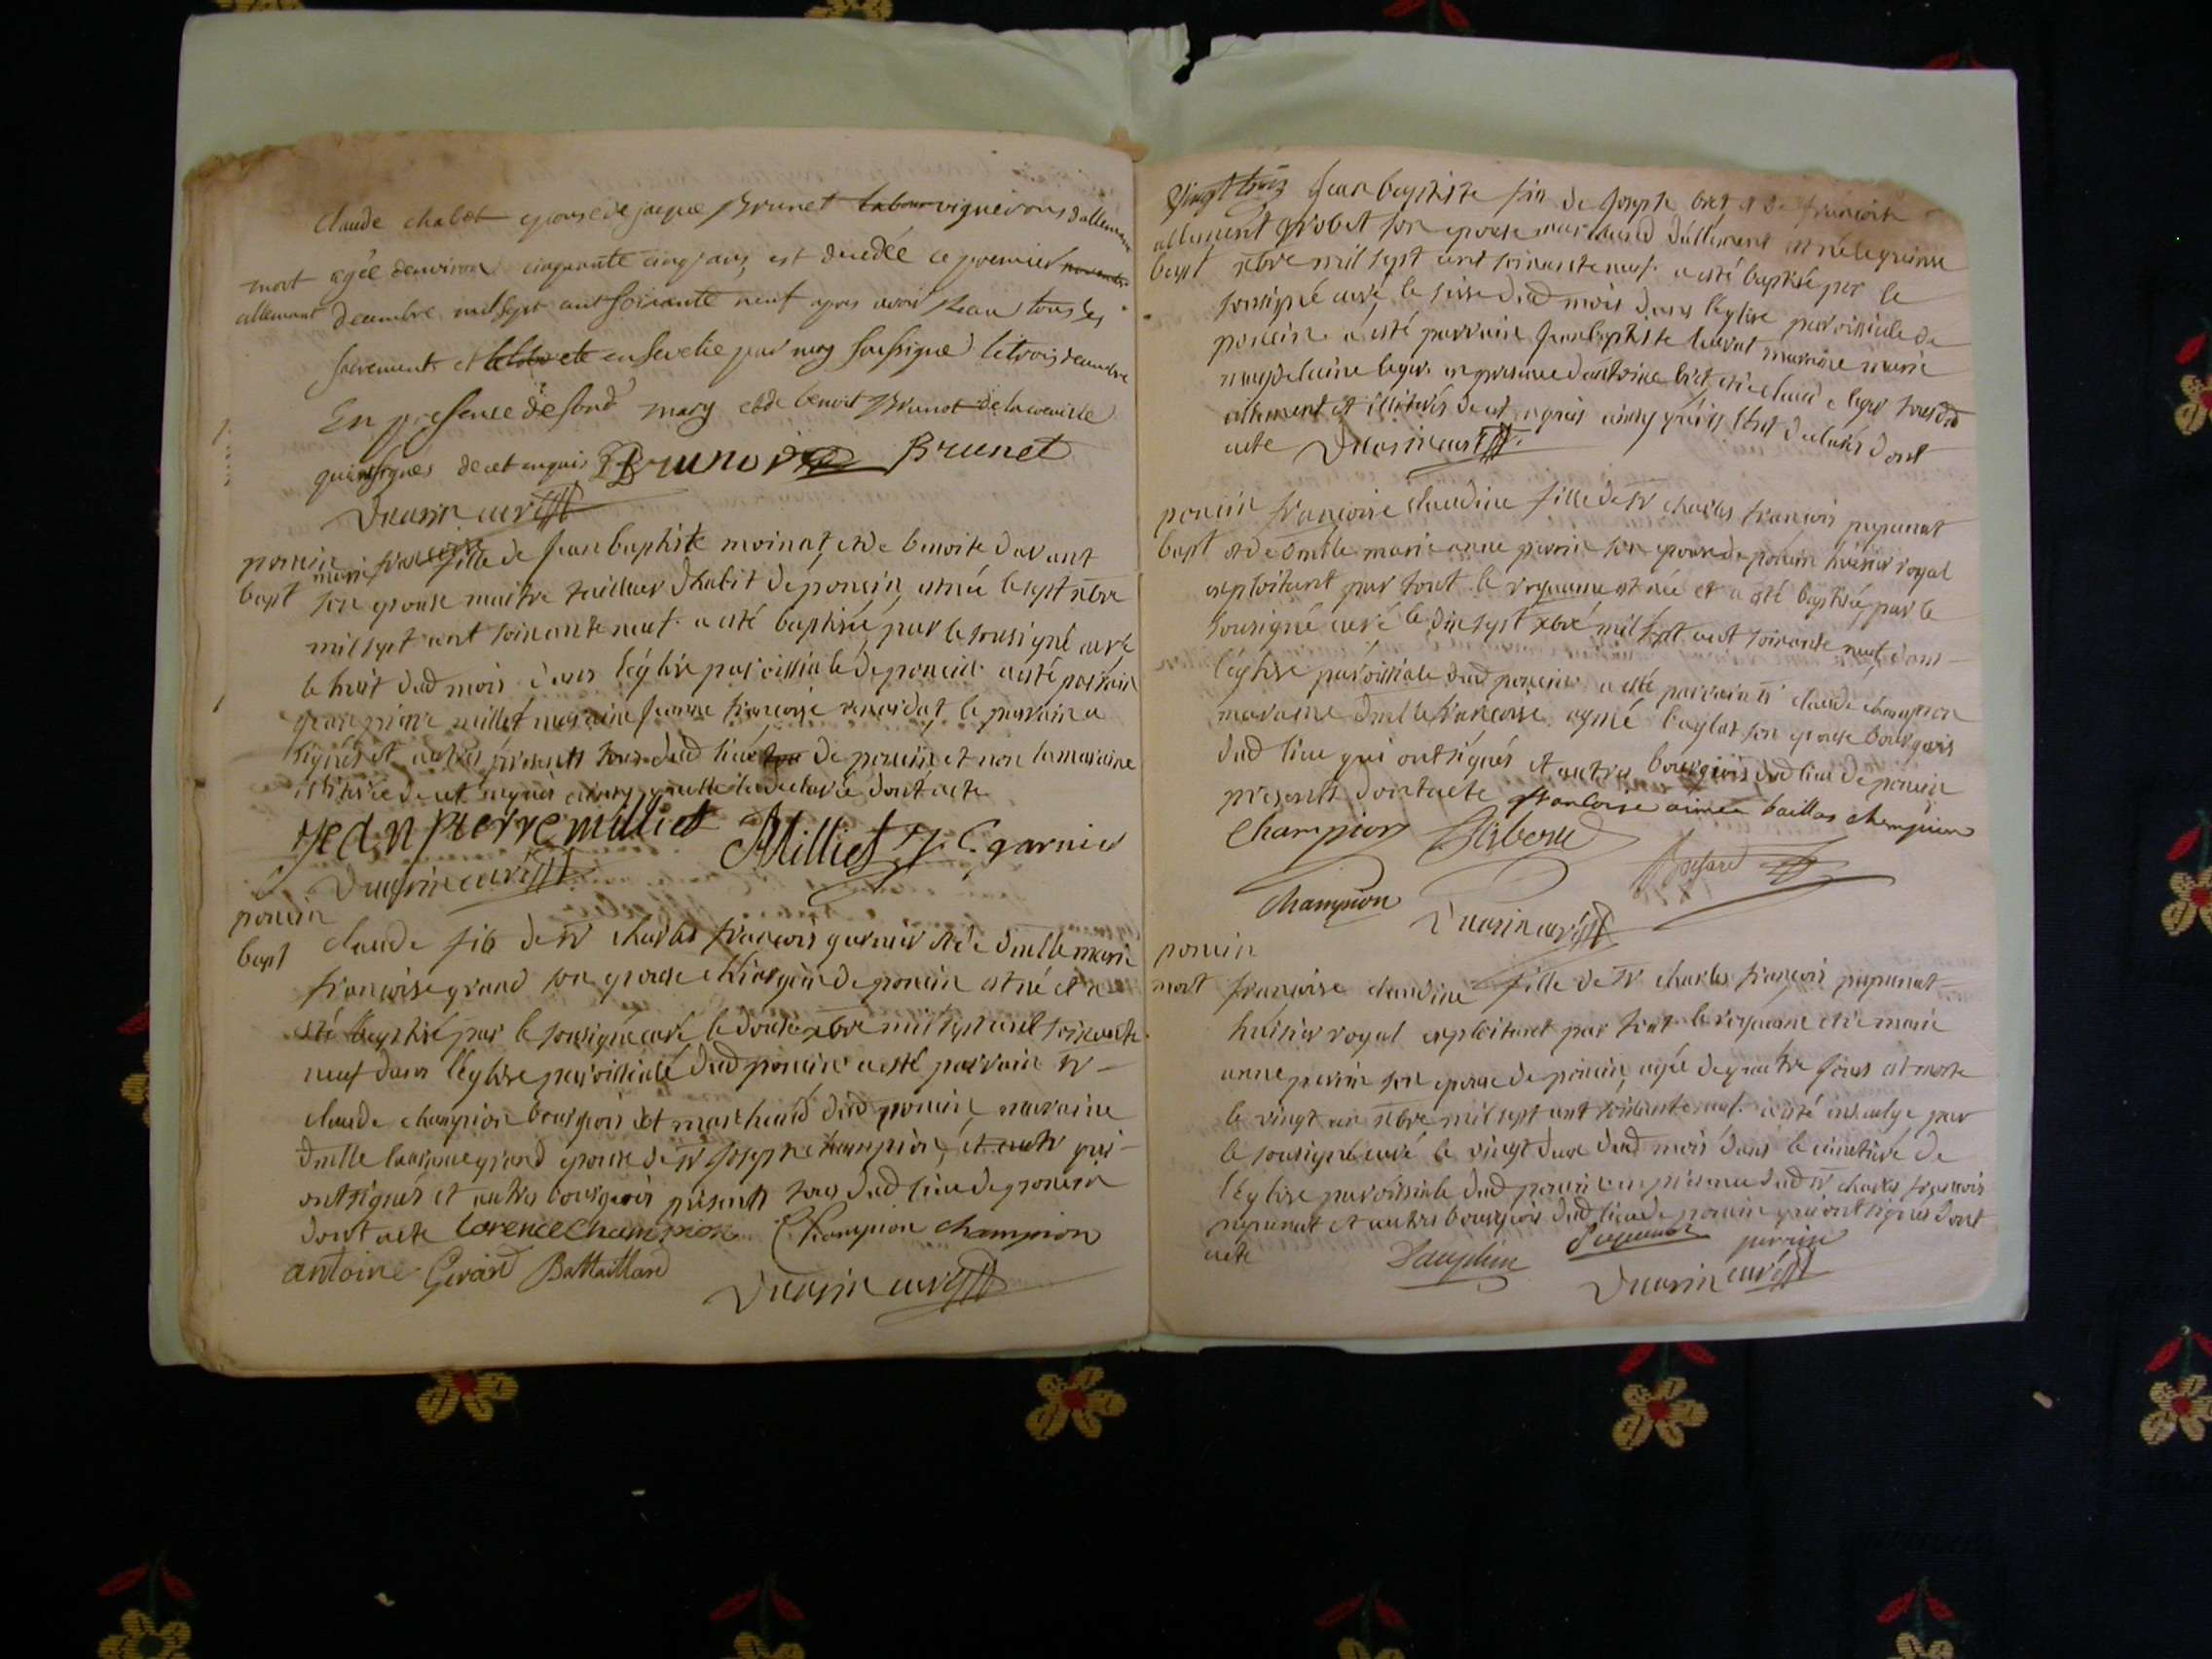 Claude chabot epouse de jaque Brunet labour vigneron d'allemens
mort agée denviron cinquante cinq ans est decedée ce premier novembre
allemant decembre mil sept cent soixante neuf apres avoir Reçu tous les
sacrements et a été ensevelie par moy soussigné le trois decembre
En presence de son d mary et de benoit Brunet
que signés de cet enquis Brunet Brunet
Duasin curé
poncin marie françoise fille de jean baptiste moinat et de benoite davant
bapt son epouse maitre tailleur d'habit de poncin, et née le sept xbre
mil sept cent soixante neuf. a esté baptisée par le sousigné curé
le huit dud mois dans l'église paroissiale de poncin a esté parrain
jean pierre milliet maraine jeanne françoise le parrain a
signés et autres presents tous dud lieu de poncin et non la maraine
illitirée de cet requis dont acte
jean pierre milliet Milliet J. C. garnier
Duasin curé
poncin
bapt claude fils de sr charles françois garnier et de dmlle marie
françoise grand son epouse chirurgien de poncin est né et a
esté baptisé par le sousigné curé le douse xbre mil sept cent soixante
neuf dans l'eglise paroissiale dud poncin a esté parrain sr
claude champion bourgeois et marchand dud poncin, maraine
dmlle laurence grand epouse de sr joseph champion, et autr qui
ont signés et autres bourgeois présents tous dud lieu de poncin
dont acte Lorence Champion Champion champion
antoine Gerard Battaillard
Duasin curé
Vingt trois Jean baptiste fils de joseph bret et de françoise
allement probet son epouse marchand d'allement est né le quinse
bapt xbre mil sept cent soixante neuf. a esté baptisé par le
sousigné curé le seise dud mois dans l'eglise paroissiale de
poncin a esté parrain jean baptiste maraine marie
magdelaine leger en presence d'antoine bret et de claude leger tous dud
allement et illitirés de cet requis ainsy qu'ils l'ont declarés dont
acte Duasin curé
poncin françoise claudine fille de sr charles françois papunat
bapt et de dmlle marie anne perrin son epouse de poncin huissier royal
exploitant par tout le royaume est née et a été baptisée par le
sousigné curé le dix sept xbre mil sept cent soixante neuf dans
l'églisse paroissiale dud poncin a esté parrain sr claude champion
maraine dmlle françoise aymé baylat son epouse bourgeois
dud lieu qui ont signés et autres bourgeois dud lieu de poncin
presents dont acte françoise aimée baillat champion
Champion
Champion
Duasin curé
poncin
mort françoise claudine fille de sr charles françois papunat
huissier royal exploitant par tout le royaume et de marie
anne perrin son epouse de poncin, agée de quatre jours est morte
le vingt un xbre mil sept cent soixante neuf. a esté inhumée par
le sousigné curé le vingt deux dud mois dans le cimetière de
l'église paroissiale dud poncin en presence dud sr charles françois
papunat et autres bourgeois dud lieu de poncin qui ont signés dont
acte Dauphin Papunat perrin
Duasin curé